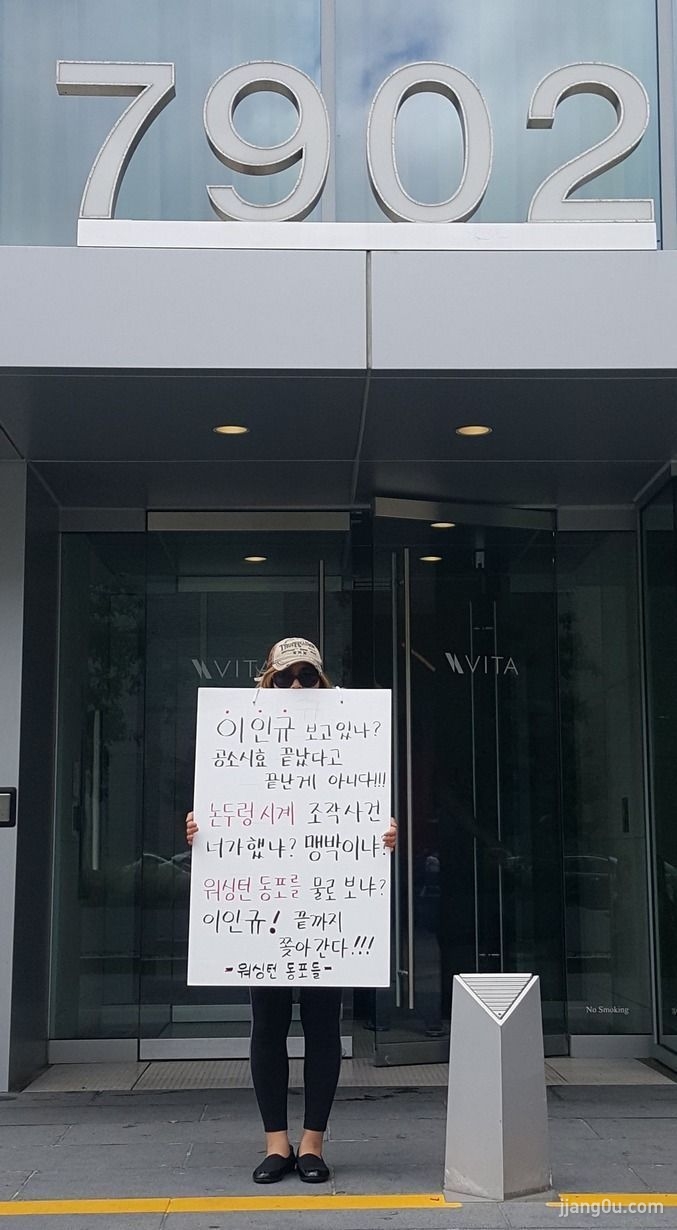 7902
VITA
VITA
이인규 보고있나?
공소시효 끝났다고
끝난게 아니다!!!
논두렁시계 조작사건
너가했냐? 맹박이냐?
워싱턴 동포를 물로 보냐?
이인규! 끝까지
쫓아간다!!!
-워싱턴 동포들-
No Smoking
jjang0u.com